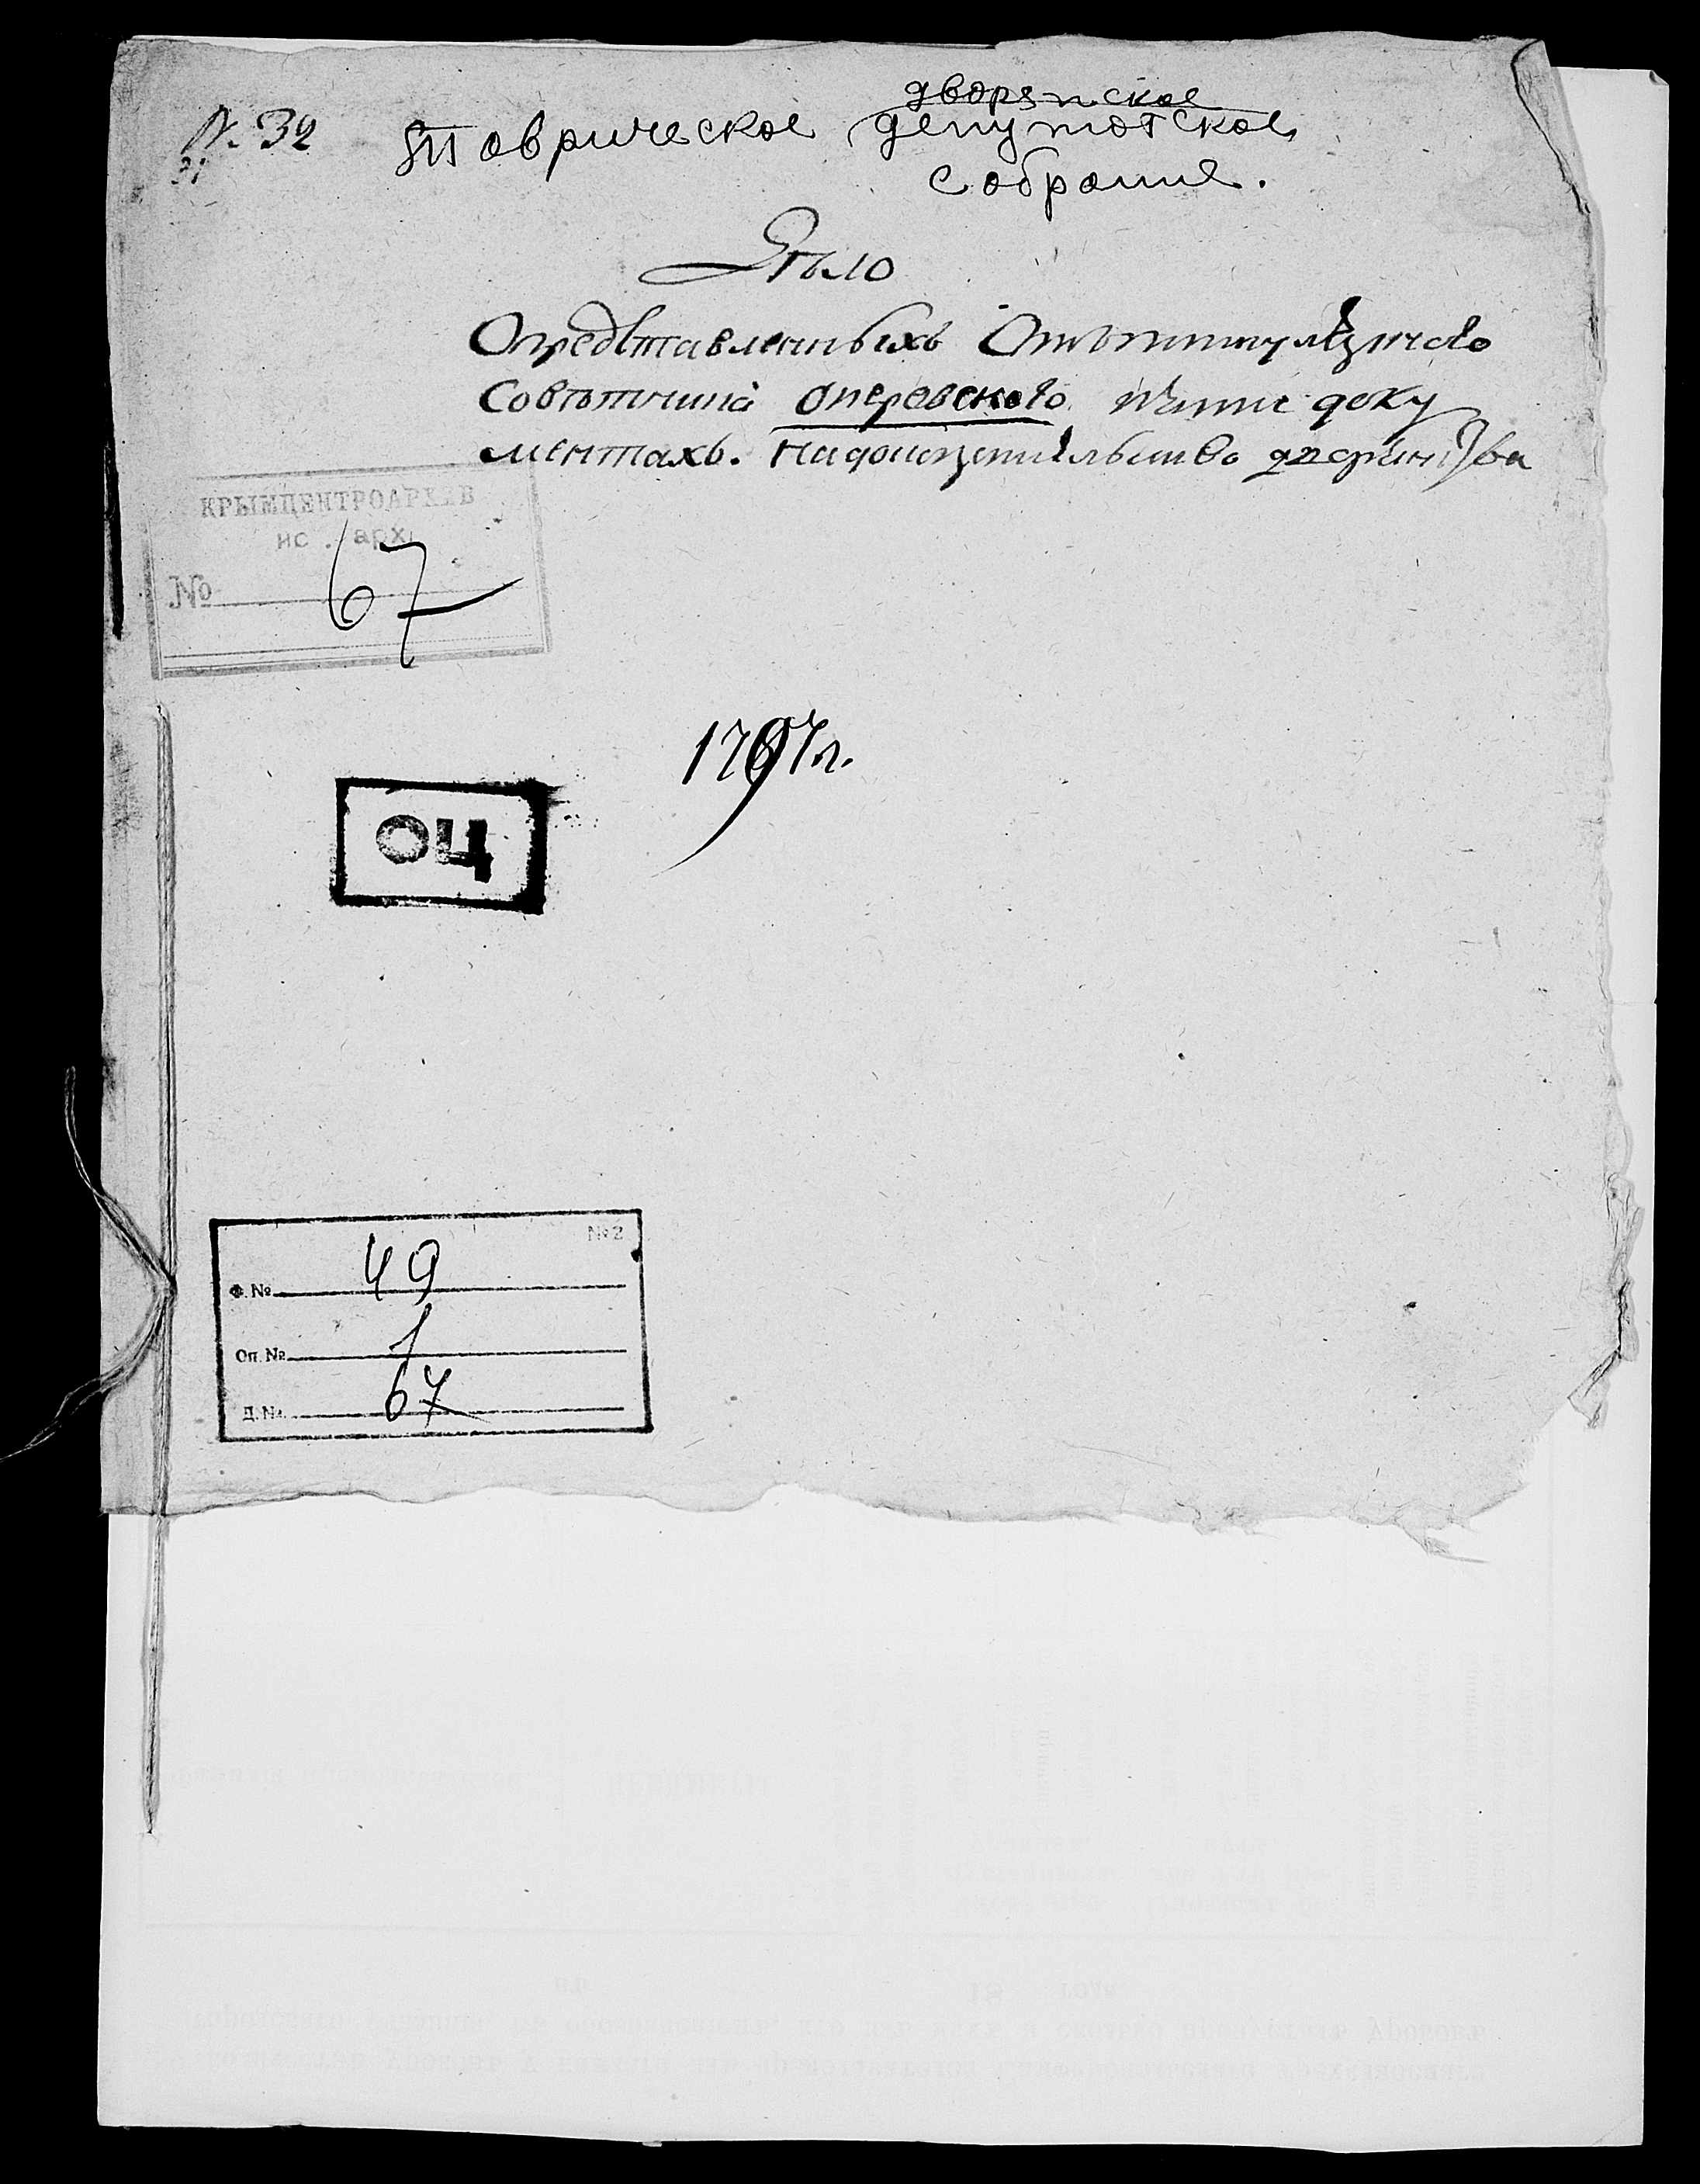 № 32
31
дворянское
Таврическое депутатское
собрание.
Дѣло
Опредставленныхъ Оттитулярнаго
Совѣтника Оперевскаго доку
ментахъ. надоказательство дворянства
КРЫМЦЕНТРОАРХИВ
ис . арх.
№ 67
1797 г.
ОЦ
№ 2
Ф. № 49
Оп. № 1
Д. № 67